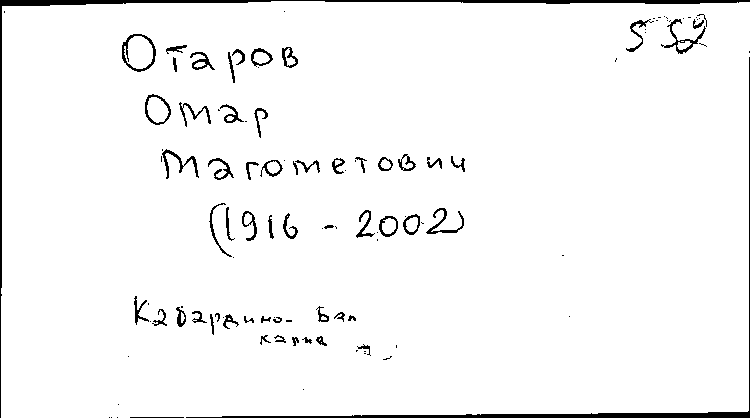 552
Отаров
Омар
Магометович
(1916 - 2002)
Кабардино- Бал
кария